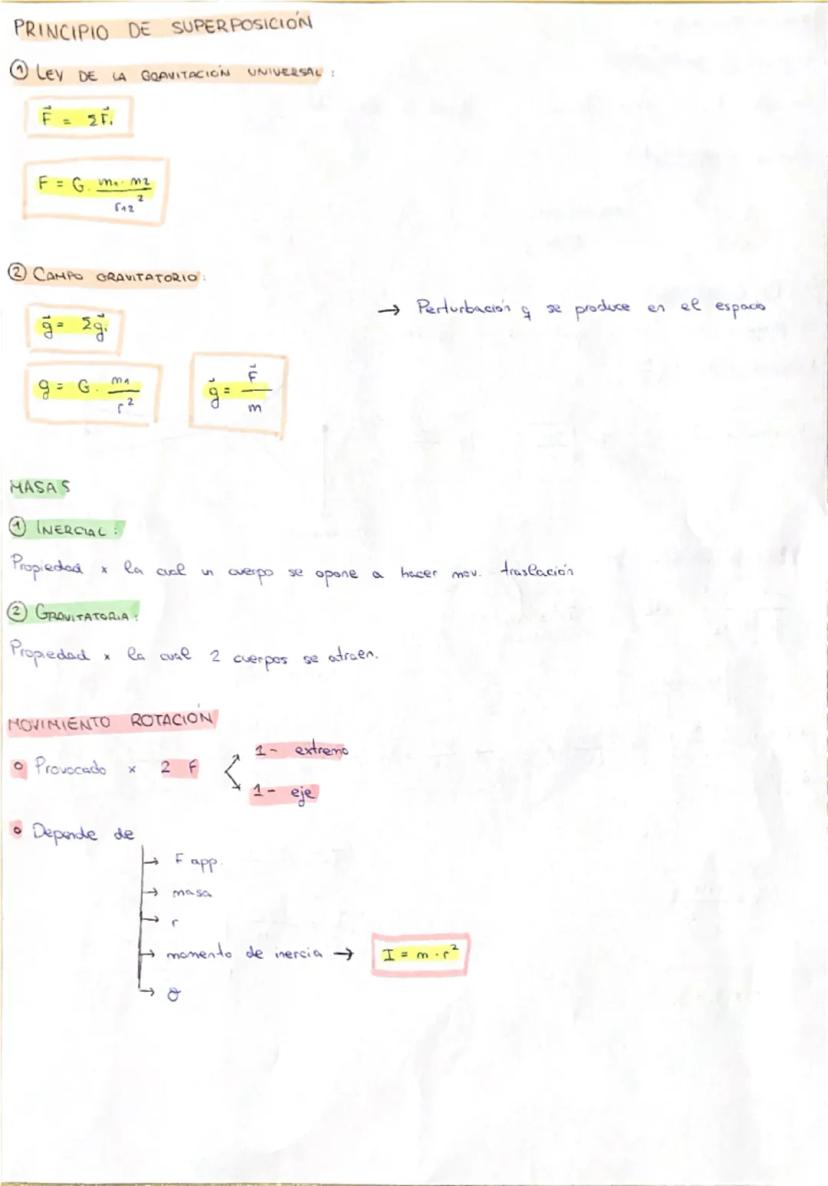 PRINCIPIO DE SUPERPOSICIÓN
① LEY DE LA GRAVITACIÓN UNIVERSAL:
F⃗ = ΣF⃗ᵢ
F = G · m₁ · m₂ / r₁₂²
② CAMPO GRAVITATORIO:
→ Perturbación q se produce en el espacio
g⃗ = Σg⃗ᵢ
g = G · m₁ / r²
g⃗ = F⃗ / m
MASAS
① INERCIAL:
Propiedad x la cual un cuerpo se opone a hacer mov. traslación
② GRAVITATORIA:
Propiedad x la cual 2 cuerpos se atraen.
MOVIMIENTO ROTACIÓN
Provocado x 2 F
1 - extremo
1 - eje
Depende de
→ F app.
→ masa
→ r
→ momento de inercia → I = m · r²